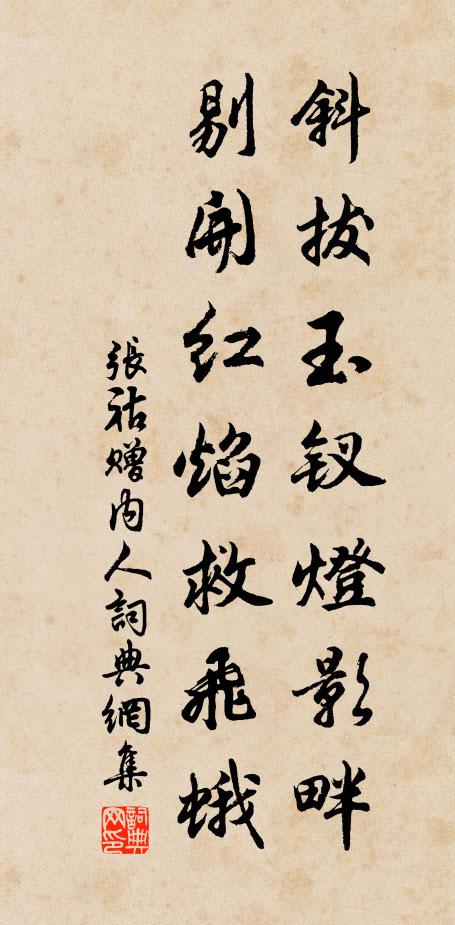 斜拔玉釵燈影畔
剔開紅焰救飛蛾
張祜贈內人詞典網集
詞典網印